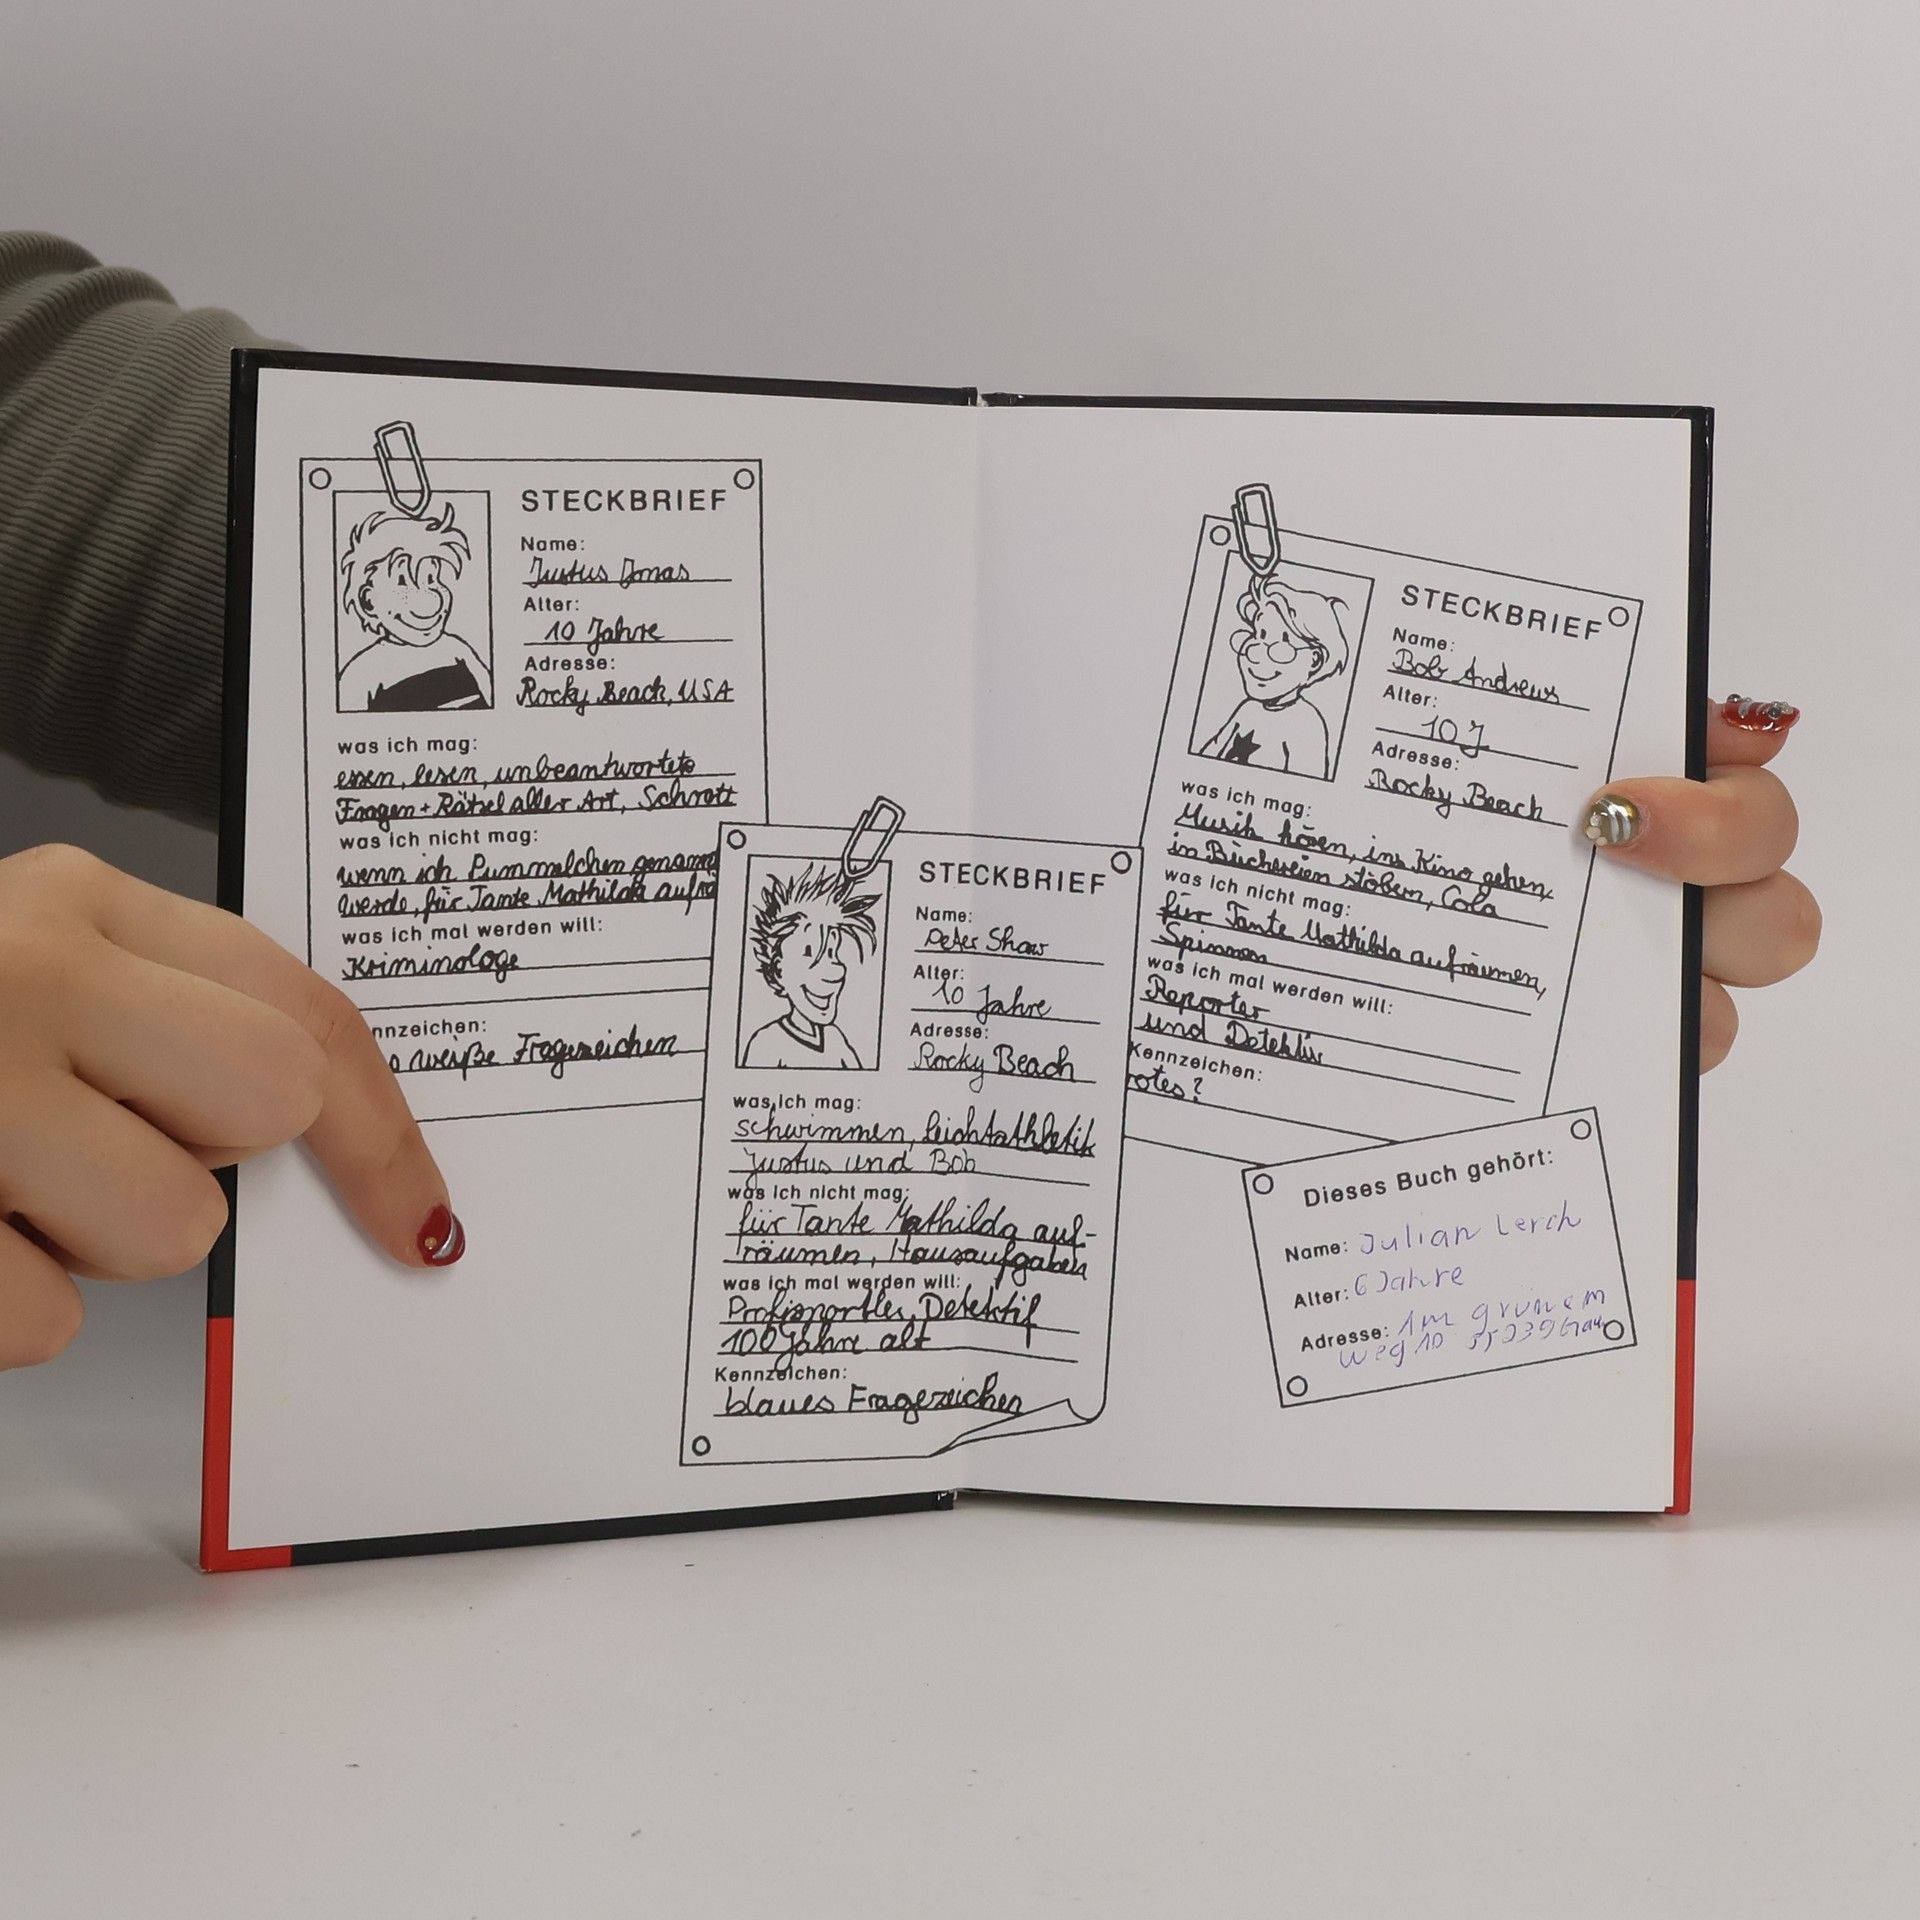 STECKBRIEF
Name:
Justus Jonas
Alter:
10 Jahre
Adresse:
Rocky Beach, USA
was ich mag:
essen, lesen, unbeantwortete
Fragen + Rätsel aller Art, Schrott
was ich nicht mag:
wenn ich Pummelchen genannt
werde, für Tante Mathilda aufrä
was ich mal werden will:
Kriminologe
nnzeichen:
weiße Fragezeichen
STECKBRIEF
Name:
Peter Shaw
Alter:
10 Jahre
Adresse:
Rocky Beach
was ich mag:
schwimmen, Leichtathletik
Justus und Bob
was ich nicht mag:
für Tante Mathilda auf-
räumen, Hausaufgaben
was ich mal werden will:
Profisportler, Detektif
100 Jahre alt
Kennzeichen:
blaues Fragezeichen
STECKBRIEF
Name:
Bob Andrews
Alter:
10 J
Adresse:
Rocky Beach
was ich mag:
Musik hören, ins Kino gehen,
in Büchereien stöbern, Cola
was ich nicht mag:
für Tante Mathilda aufräumen,
Spinnen
was ich mal werden will:
Reporter
und Detektiv
Kennzeichen:
rotes?
Dieses Buch gehört:
Name: Julian Lerch
Alter: 6 Jahre
Adresse: Am grünem
Weg 10